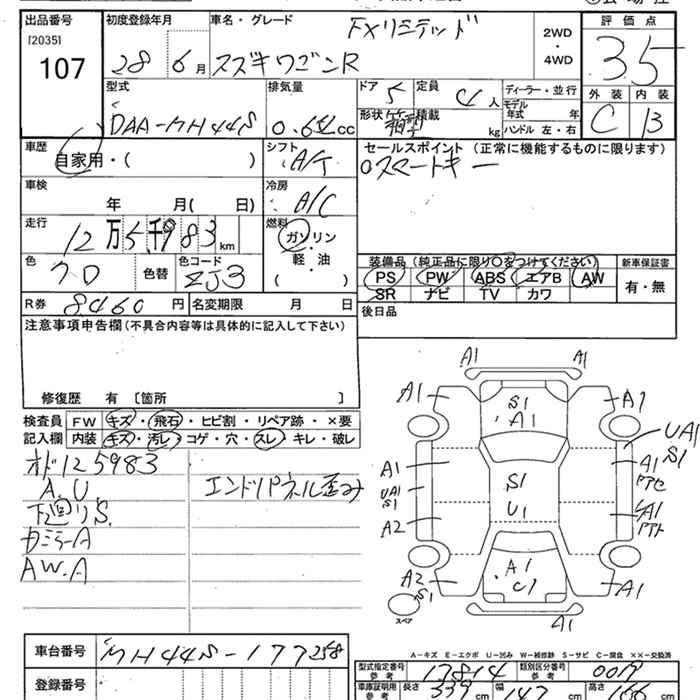 出品番号
[2035]
107
初度登録年月
28年6月
車名・グレード
FXリミテッド
スズキワゴンR
2WD
・
4WD
評価点
3.5
外装 内装
C B
型式
DAA-MH44S
排気量
0.64cc
ドア 5
定員 4人
形状 箱型
積載 kg
ディーラー・並行
モデル年式 年
ハンドル 左・右
車歴
自家用・( )
シフト
A/T
セールスポイント (正常に機能するものに限ります)
スマートキー
車検
年 月( 日)
冷房
A/C
走行
12万5千983km
燃料
ガソリン
・
軽・油
( )
色 クロ
色替
色コード ZJ3
装備品 (純正品に限り○をつけてください)
新車保証書
PS PW ABS エアB AW
有・無
SR ナビ TV カワ
R券 8460円
名変期限 月 日
後日品
注意事項申告欄 (不具合内容等は具体的に記入して下さい)
修復歴 有 〔箇所 〕
検査員記入欄
FW キズ・飛石・ヒビ割・リペア跡・×要
内装 キズ・汚レ・コゲ・穴・スレ・キレ・破レ
オド125983
A.U
下廻リS.
カミラーA
AW.A
エンドパネル歪み
A1 A1
A1 S1 A1 A1
UA1
S1
A1 A1
アセ
UA1
S1
S1
U1
A2 UA1
アト
A2
S1
A1
C1
A1
スペア
A1
A-キズ E-エクボ U-凹み W-補修跡 S-サビ C-腐食 ××-交換済
車台番号
MH44S-177258
型式指定番号
参考
17814
類別区分番号
参考
登録番号
車庫証明用
参考
長さ 339cm
幅 147cm
高さ 166cm